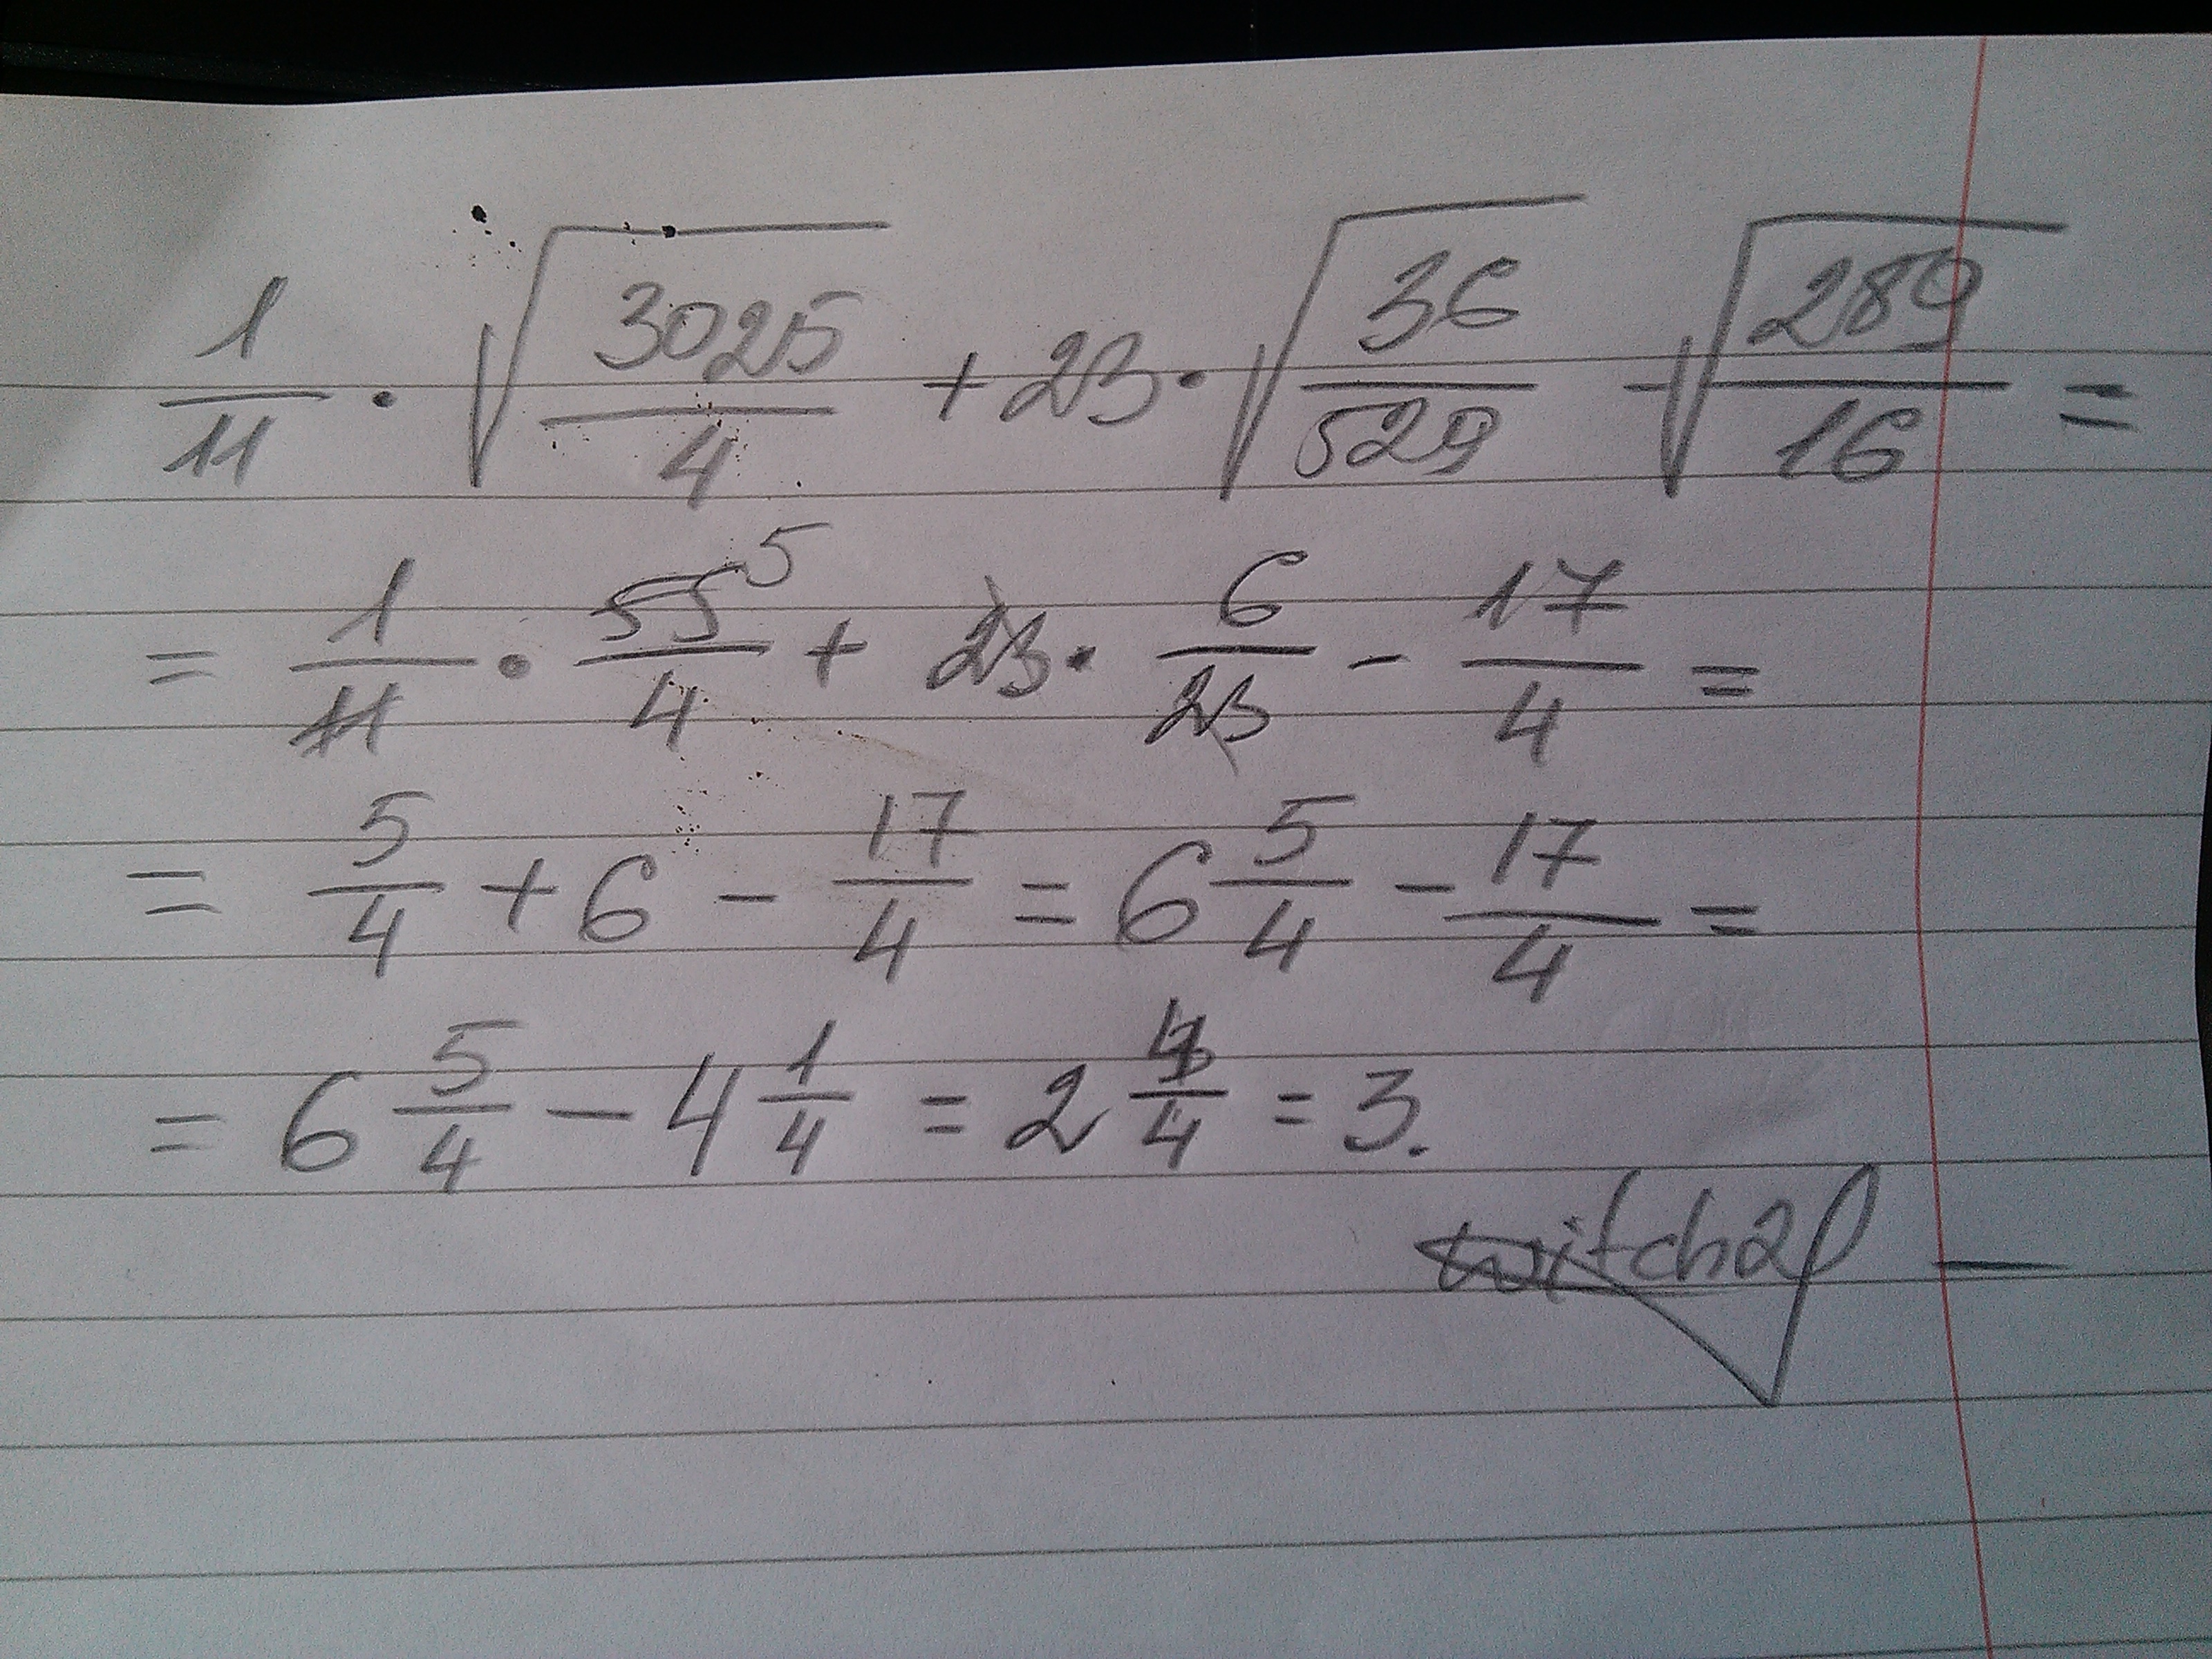 1/11 · √(3025/4) + 23 · √(36/529) - √(289/16) =
= 1/11 · 55/4 5 + 23 · 6/23 - 17/4 =
= 5/4 + 6 - 17/4 = 6 5/4 - 17/4 =
= 6 5/4 - 4 1/4 = 2 4/4 = 3.
witch2l